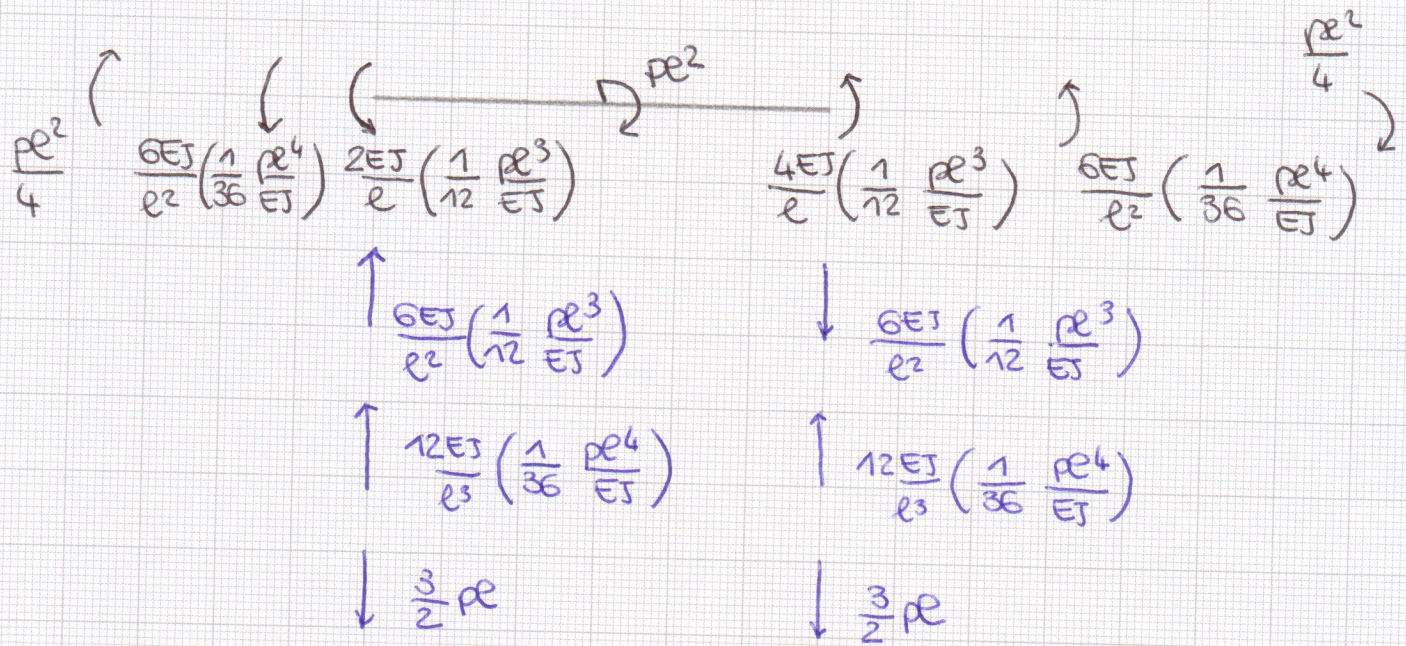 pl²
pl²/4
pl²/4 6EJ/l² (1/36 pl⁴/EJ) 2EJ/l (1/12 pl³/EJ) 4EJ/l (1/12 pl³/EJ) 6EJ/l² (1/36 pl⁴/EJ)
6EJ/l² (1/12 pl³/EJ) 6EJ/l² (1/12 pl³/EJ)
12EJ/l³ (1/36 pl⁴/EJ) 12EJ/l³ (1/36 pl⁴/EJ)
3/2 pl 3/2 pl